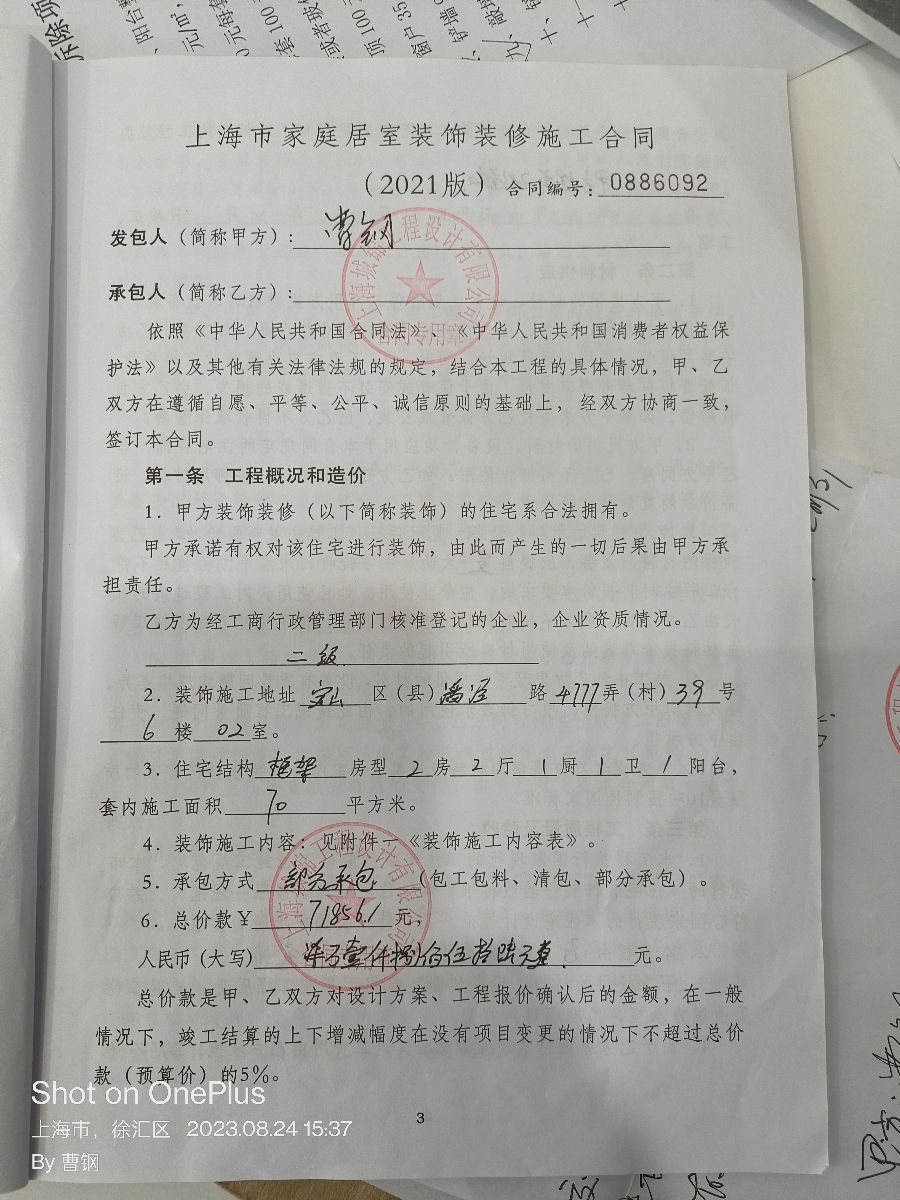 上海市家庭居室装饰装修施工合同
（2021版）合同编号：0886092
发包人（简称甲方）：曹钢
承包人（简称乙方）：
上海城锦工程设计有限公司
合同专用章
依照《中华人民共和国合同法》、《中华人民共和国消费者权益保
护法》以及其他有关法律法规的规定，结合本工程的具体情况，甲、乙
双方在遵循自愿、平等、公平、诚信原则的基础上，经双方协商一致，
签订本合同。
第一条 工程概况和造价
1．甲方装饰装修（以下简称装饰）的住宅系合法拥有。
甲方承诺有权对该住宅进行装饰，由此而产生的一切后果由甲方承
担责任。
乙方为经工商行政管理部门核准登记的企业，企业资质情况。
二级
2．装饰施工地址 宝山 区（县）潘泾 路 4777 弄（村）39 号
6 楼 02 室。
3．住宅结构 框架 房型 2 房 2 厅 1 厨 1 卫 1 阳台，
套内施工面积 70 平方米。
4．装饰施工内容：见附件一《装饰施工内容表》。
5．承包方式 部分承包 （包工包料、清包、部分承包）。
6．总价款￥ 71856.1 元，
人民币（大写） 柒万壹仟捌佰伍拾陆元壹 元。
总价款是甲、乙双方对设计方案、工程报价确认后的金额，在一般
情况下，竣工结算的上下增减幅度在没有项目变更的情况下不超过总价
款（预算价）的5%。
3
Shot on OnePlus
上海市，徐汇区 2023.08.24 15:37
By 曹钢